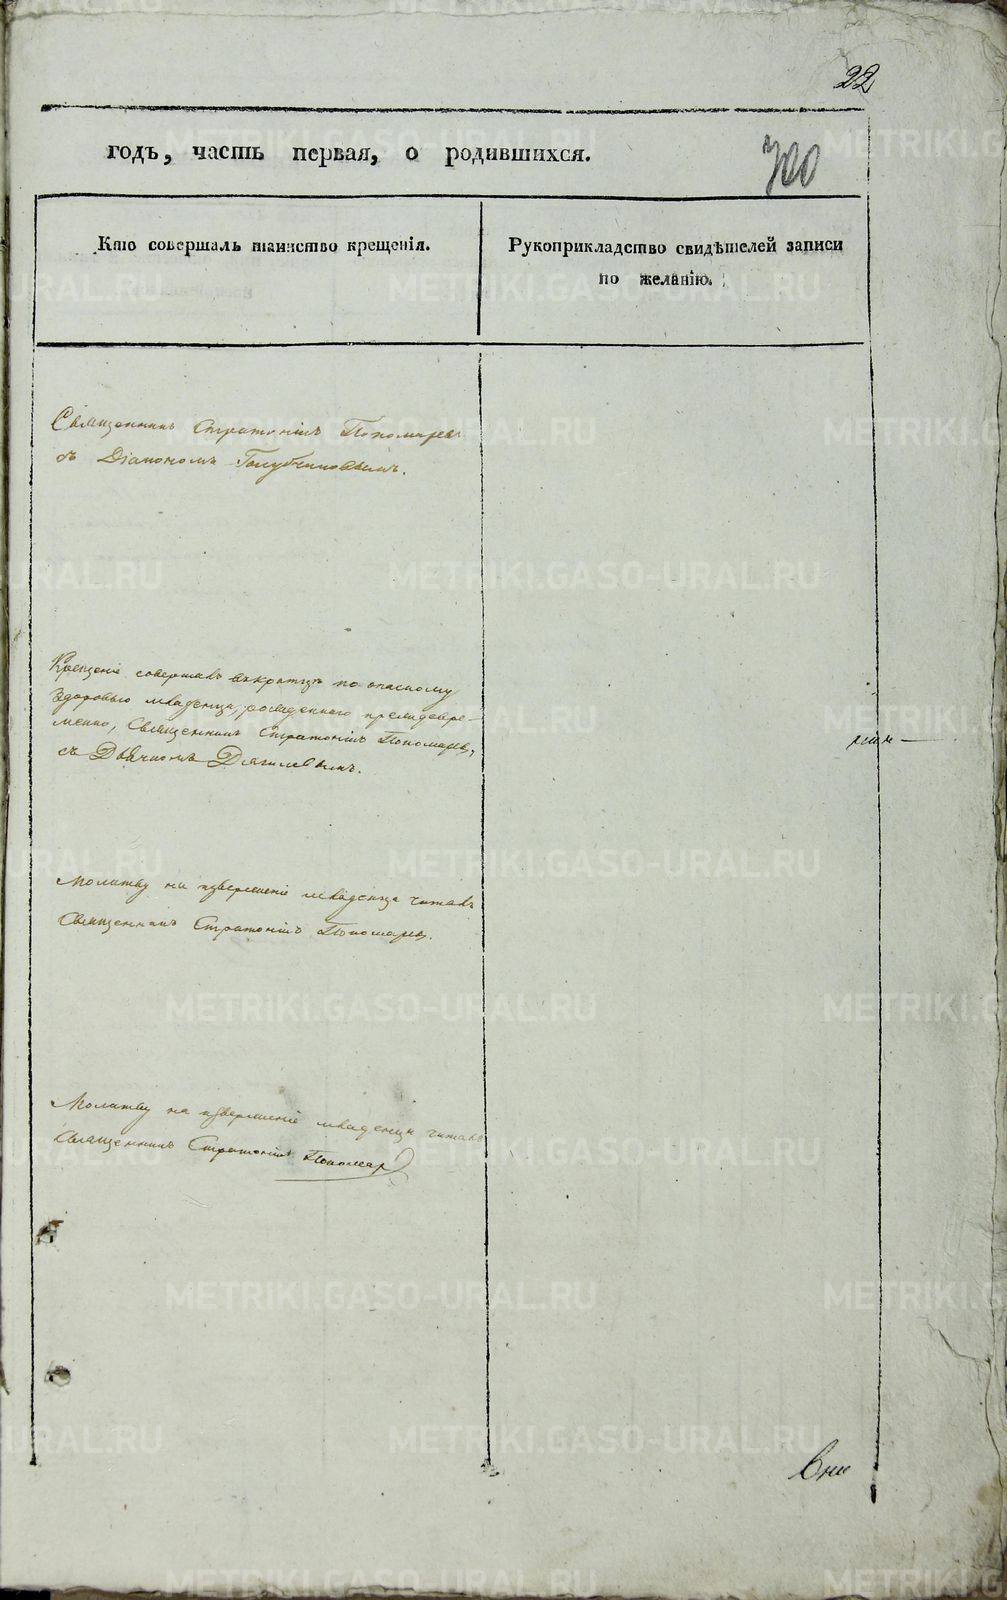 22
годъ, часть первая, о родившихся.
700
Кто совершалъ таинство крещенія.
Рукоприкладство свидѣтелей записи
по желанію.
Священникъ Стратоникъ Пономаревъ
съ Діакономъ Голубчиковымъ.
Крещеніе совершалъ вкратцѣ по опасному
здоровью младенца, рожденнаго преждевре-
менно, Священникъ Стратоникъ Пономаревъ,
съ Дьячкомъ Дягилевымъ.
Молитву на извержение младенца читалъ
Священникъ Стратоникъ Пономаревъ.
Молитву на извержение младенца читалъ
Священникъ Стратоникъ Пономар
METRIKI.GASO-URAL.RU